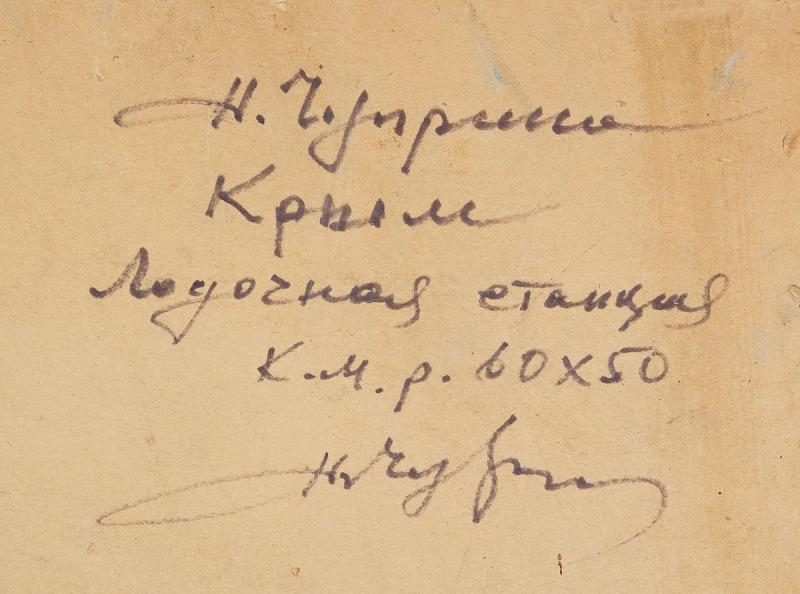 Н. Чурина
Крым
Лодочная станция
К.м.р. 60х50
Н. Чурин